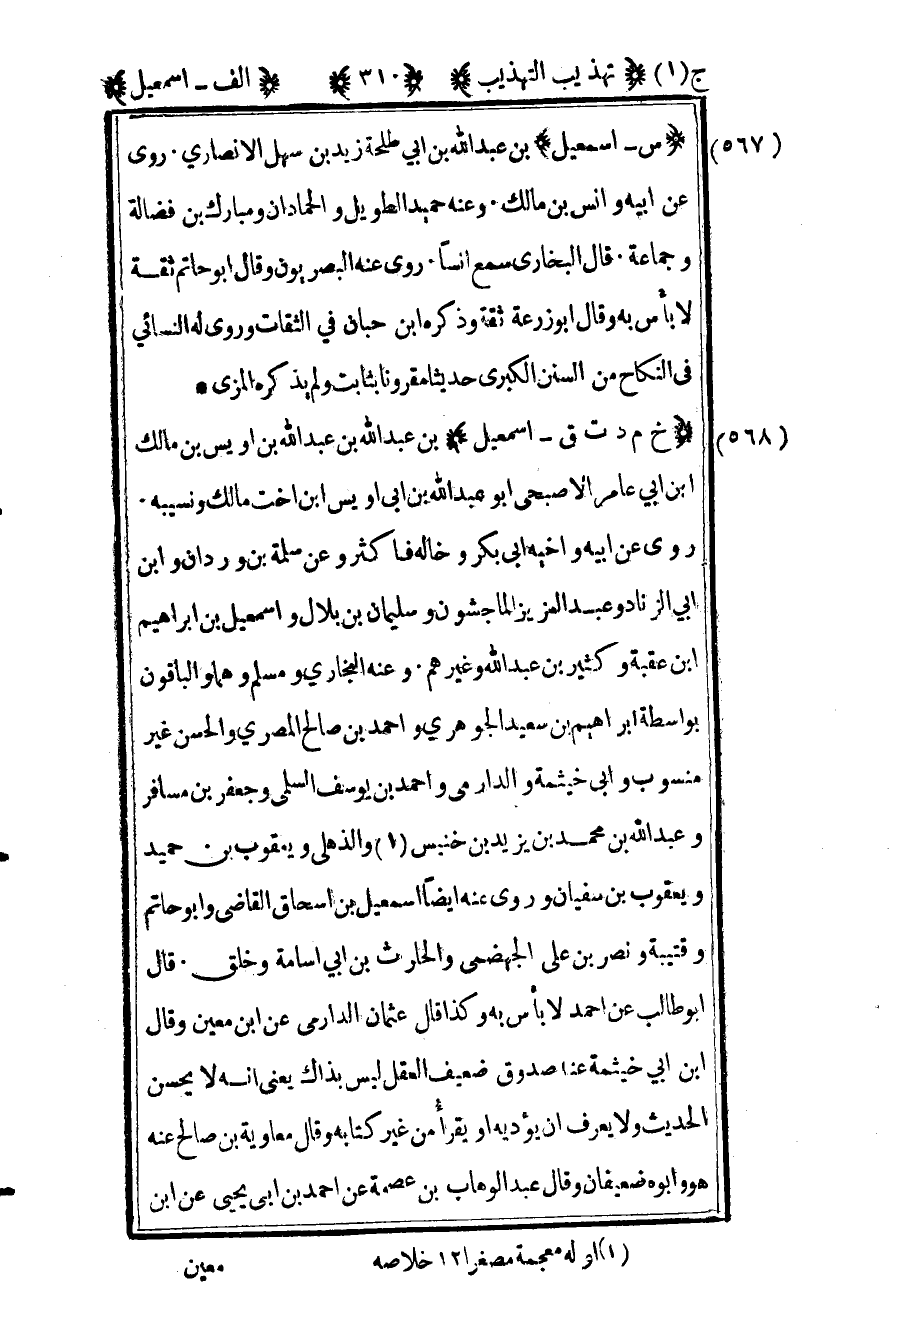 ج (١) ﴿ تهذيب التهذيب ﴾ ﴿ ٣١٠ ﴾ ﴿ الف ـ اسمعيل ﴾
(٥٦٧) ﴿ س ـ اسمعيل ﴾ بن عبدالله بن ابي طلحة زيد بن سهل الانصاري · روى
عن ابيه و انس بن مالك · وعنه حميد الطويل و الحمادان ومبارك بن فضالة
و جماعة · قال البخارى سمع انساً · روى عنه البصريون وقال ابو حاتم ثقة
لا بأس به وقال ابوزرعة ثقة وذكره ابن حبان في الثقات وروى له النسائي
فى النكاح من السنن الكبرى حديثا مقرونا بثابت ولم يذكره المزى •
(٥٦٨) ﴿ خ م د ت ق ـ اسمعيل ﴾ بن عبدالله بن عبدالله بن اويس بن مالك
ابن ابي عامر الاصبحى ابو عبدالله بن ابى اويس ابن اخت مالك ونسيبه ·
روى عن ابيه و اخيه ابى بكر و خاله فاكثر و عن سلمة بن وردان و ابن
ابي الزناد وعبدالعزيز الماجشون و سليمان بن بلال و اسمعيل بن ابراهيم
ابن عقبة و كثير بن عبدالله وغيرهم · و عنه البخاري و مسلم وهما و الباقون
بواسطة ابراهيم بن سعيد الجوهري و احمد بن صالح المصري والحسن غير
منسوب و ابى خيثمة و الدارمى و احمد بن يوسف السلمى وجعفر بن مسافر
و عبدالله بن محمد بن يزيد بن خنبس (١) والذهلى و يعقوب بن حميد
و يعقوب بن سفيان و روى عنه ايضاً اسمعيل بن اسحاق القاضى وابوحاتم
و قتيبة و نصر بن على الجهضمى والحارث بن ابي اسامة وخلق · قال
ابوطالب عن احمد لا بأس به وكذا قال عثمان الدارمى عن ابن معين وقال
ابن ابي خيثمة عنه صدوق ضعيف العقل ليس بذاك يعنى انه لا يحسن
الحديث ولا يعرف ان يؤديه او يقرأ من غير كتابه وقال معاوية بن صالح عنه
هو وابوه ضعيفان وقال عبدالوهاب بن عصمة عن احمد بن ابى يحيى عن ابن
(١) اوله معجمة مصغرا ١٢ خلاصه
معين